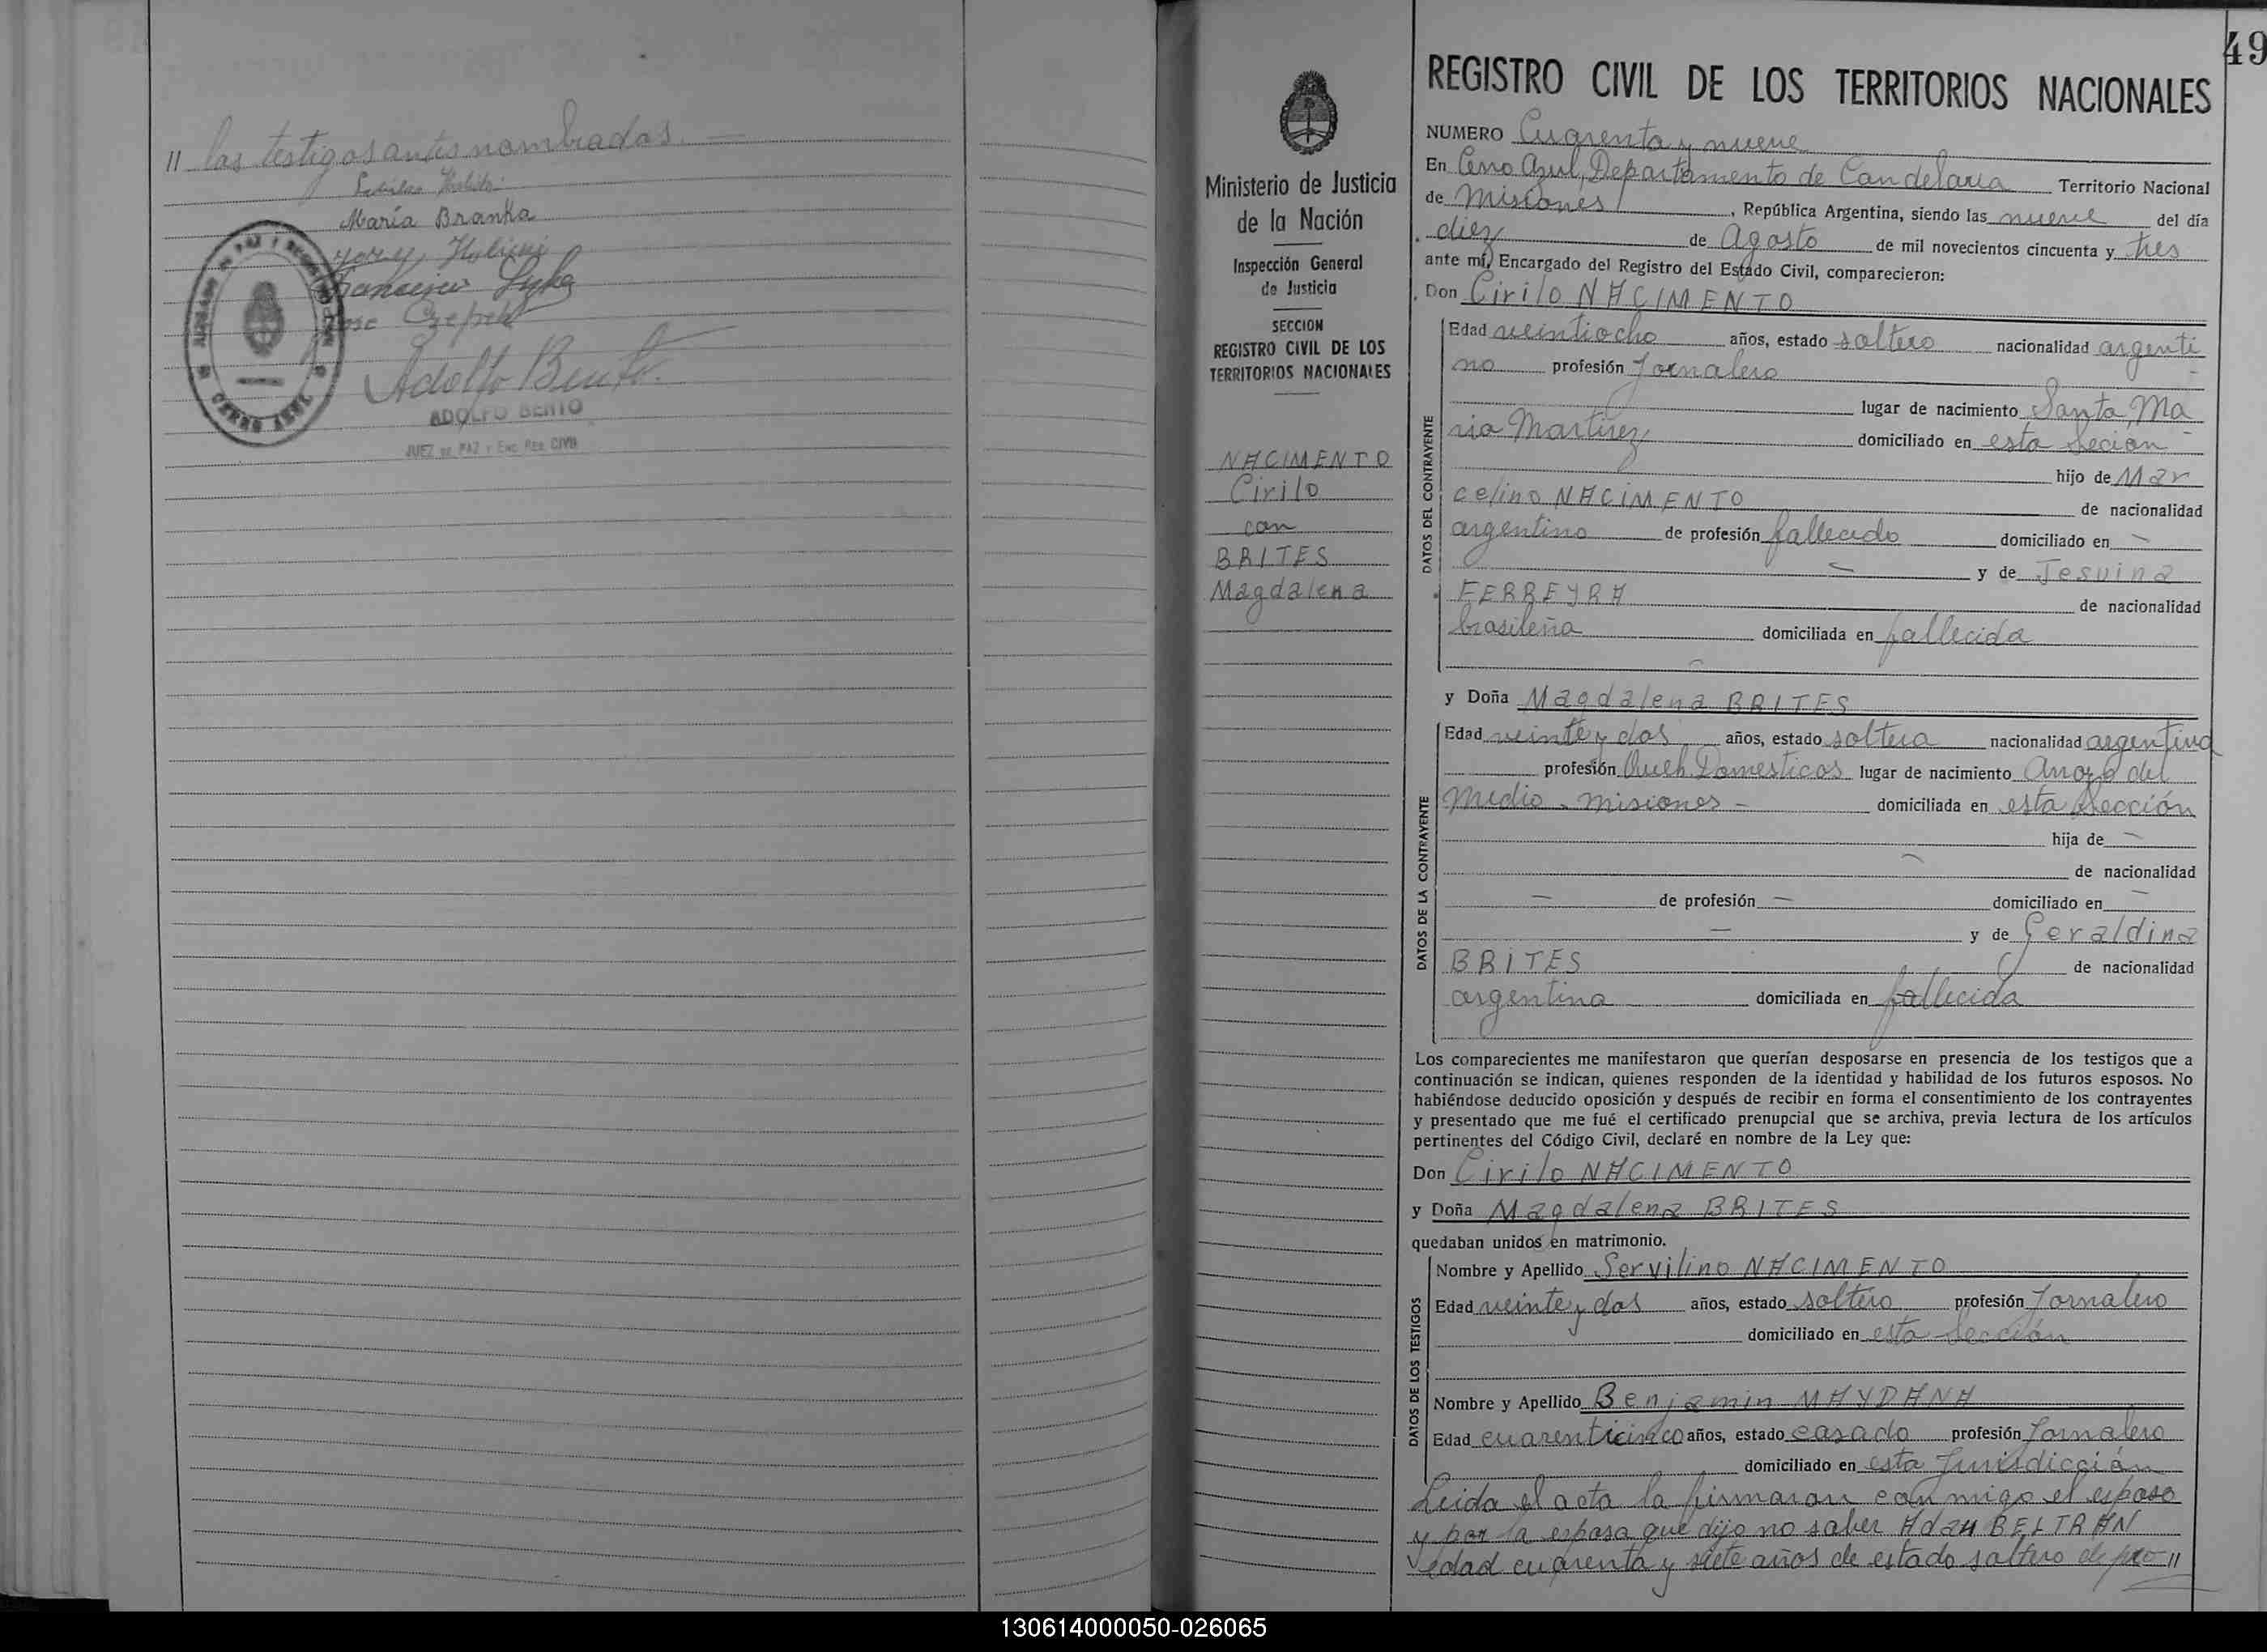 // los testigos antes nombrados.—
María Branka
José Czepil
Adolfo Bento
ADOLFO BENTO
JUEZ DE PAZ Y ENC. REG. CIVIL
49
Ministerio de Justicia
de la Nación
Inspección General
de Justicia
SECCION
REGISTRO CIVIL DE LOS
TERRITORIOS NACIONALES
NACIMENTO
Cirilo
con
BRITES
Magdalena
REGISTRO CIVIL DE LOS TERRITORIOS NACIONALES
NUMERO Cuarenta y nueve
En Cerro Azul, Departamento de Candelaria Territorio Nacional
de Misiones, República Argentina, siendo las nueve del día
diez de Agosto de mil novecientos cincuenta y tres
ante mí, Encargado del Registro del Estado Civil, comparecieron:
Don Cirilo NACIMENTO
DATOS DEL CONTRAYENTE
Edad veintiocho años, estado soltero nacionalidad argenti
no profesión Jornalero
lugar de nacimiento Santa Ma
ria Martirez domiciliado en esta Seción
hijo de Mar
celino NACIMENTO de nacionalidad
argentino de profesión fallecido domiciliado en —
— y de Jesuina
FERREYRA de nacionalidad
brasileña domiciliada en fallecida
y Doña Magdalena BRITES
DATOS DE LA CONTRAYENTE
Edad veinte y dos años, estado soltera nacionalidad argentina
profesión Queh. Domesticos lugar de nacimiento Arroyo del
Medio - Misiones - domiciliada en esta Sección
hija de —
— de nacionalidad
— de profesión — domiciliado en —
— y de Geraldina
BRITES de nacionalidad
argentina domiciliada en fallecida
Los comparecientes me manifestaron que querían desposarse en presencia de los testigos que a
continuación se indican, quienes responden de la identidad y habilidad de los futuros esposos. No
habiéndose deducido oposición y después de recibir en forma el consentimiento de los contrayentes
y presentado que me fué el certificado prenupcial que se archiva, previa lectura de los artículos
pertinentes del Código Civil, declaré en nombre de la Ley que:
Don Cirilo NACIMENTO
y Doña Magdalena BRITES
quedaban unidos en matrimonio.
DATOS DE LOS TESTIGOS
Nombre y Apellido Servilino NACIMENTO
Edad veinte y dos años, estado soltero profesión Jornalero
domiciliado en esta Sección
Nombre y Apellido Benjamin MAYDANA
Edad cuarenticinco años, estado casado profesión Jornalero
domiciliado en esta Jurisdicción
Leida el acta la firmaron conmigo el esposo
y por la esposa que dijo no saber Adan BELTRAN
edad cuarenta y siete años de estado soltero de pro //
130614000050-026065